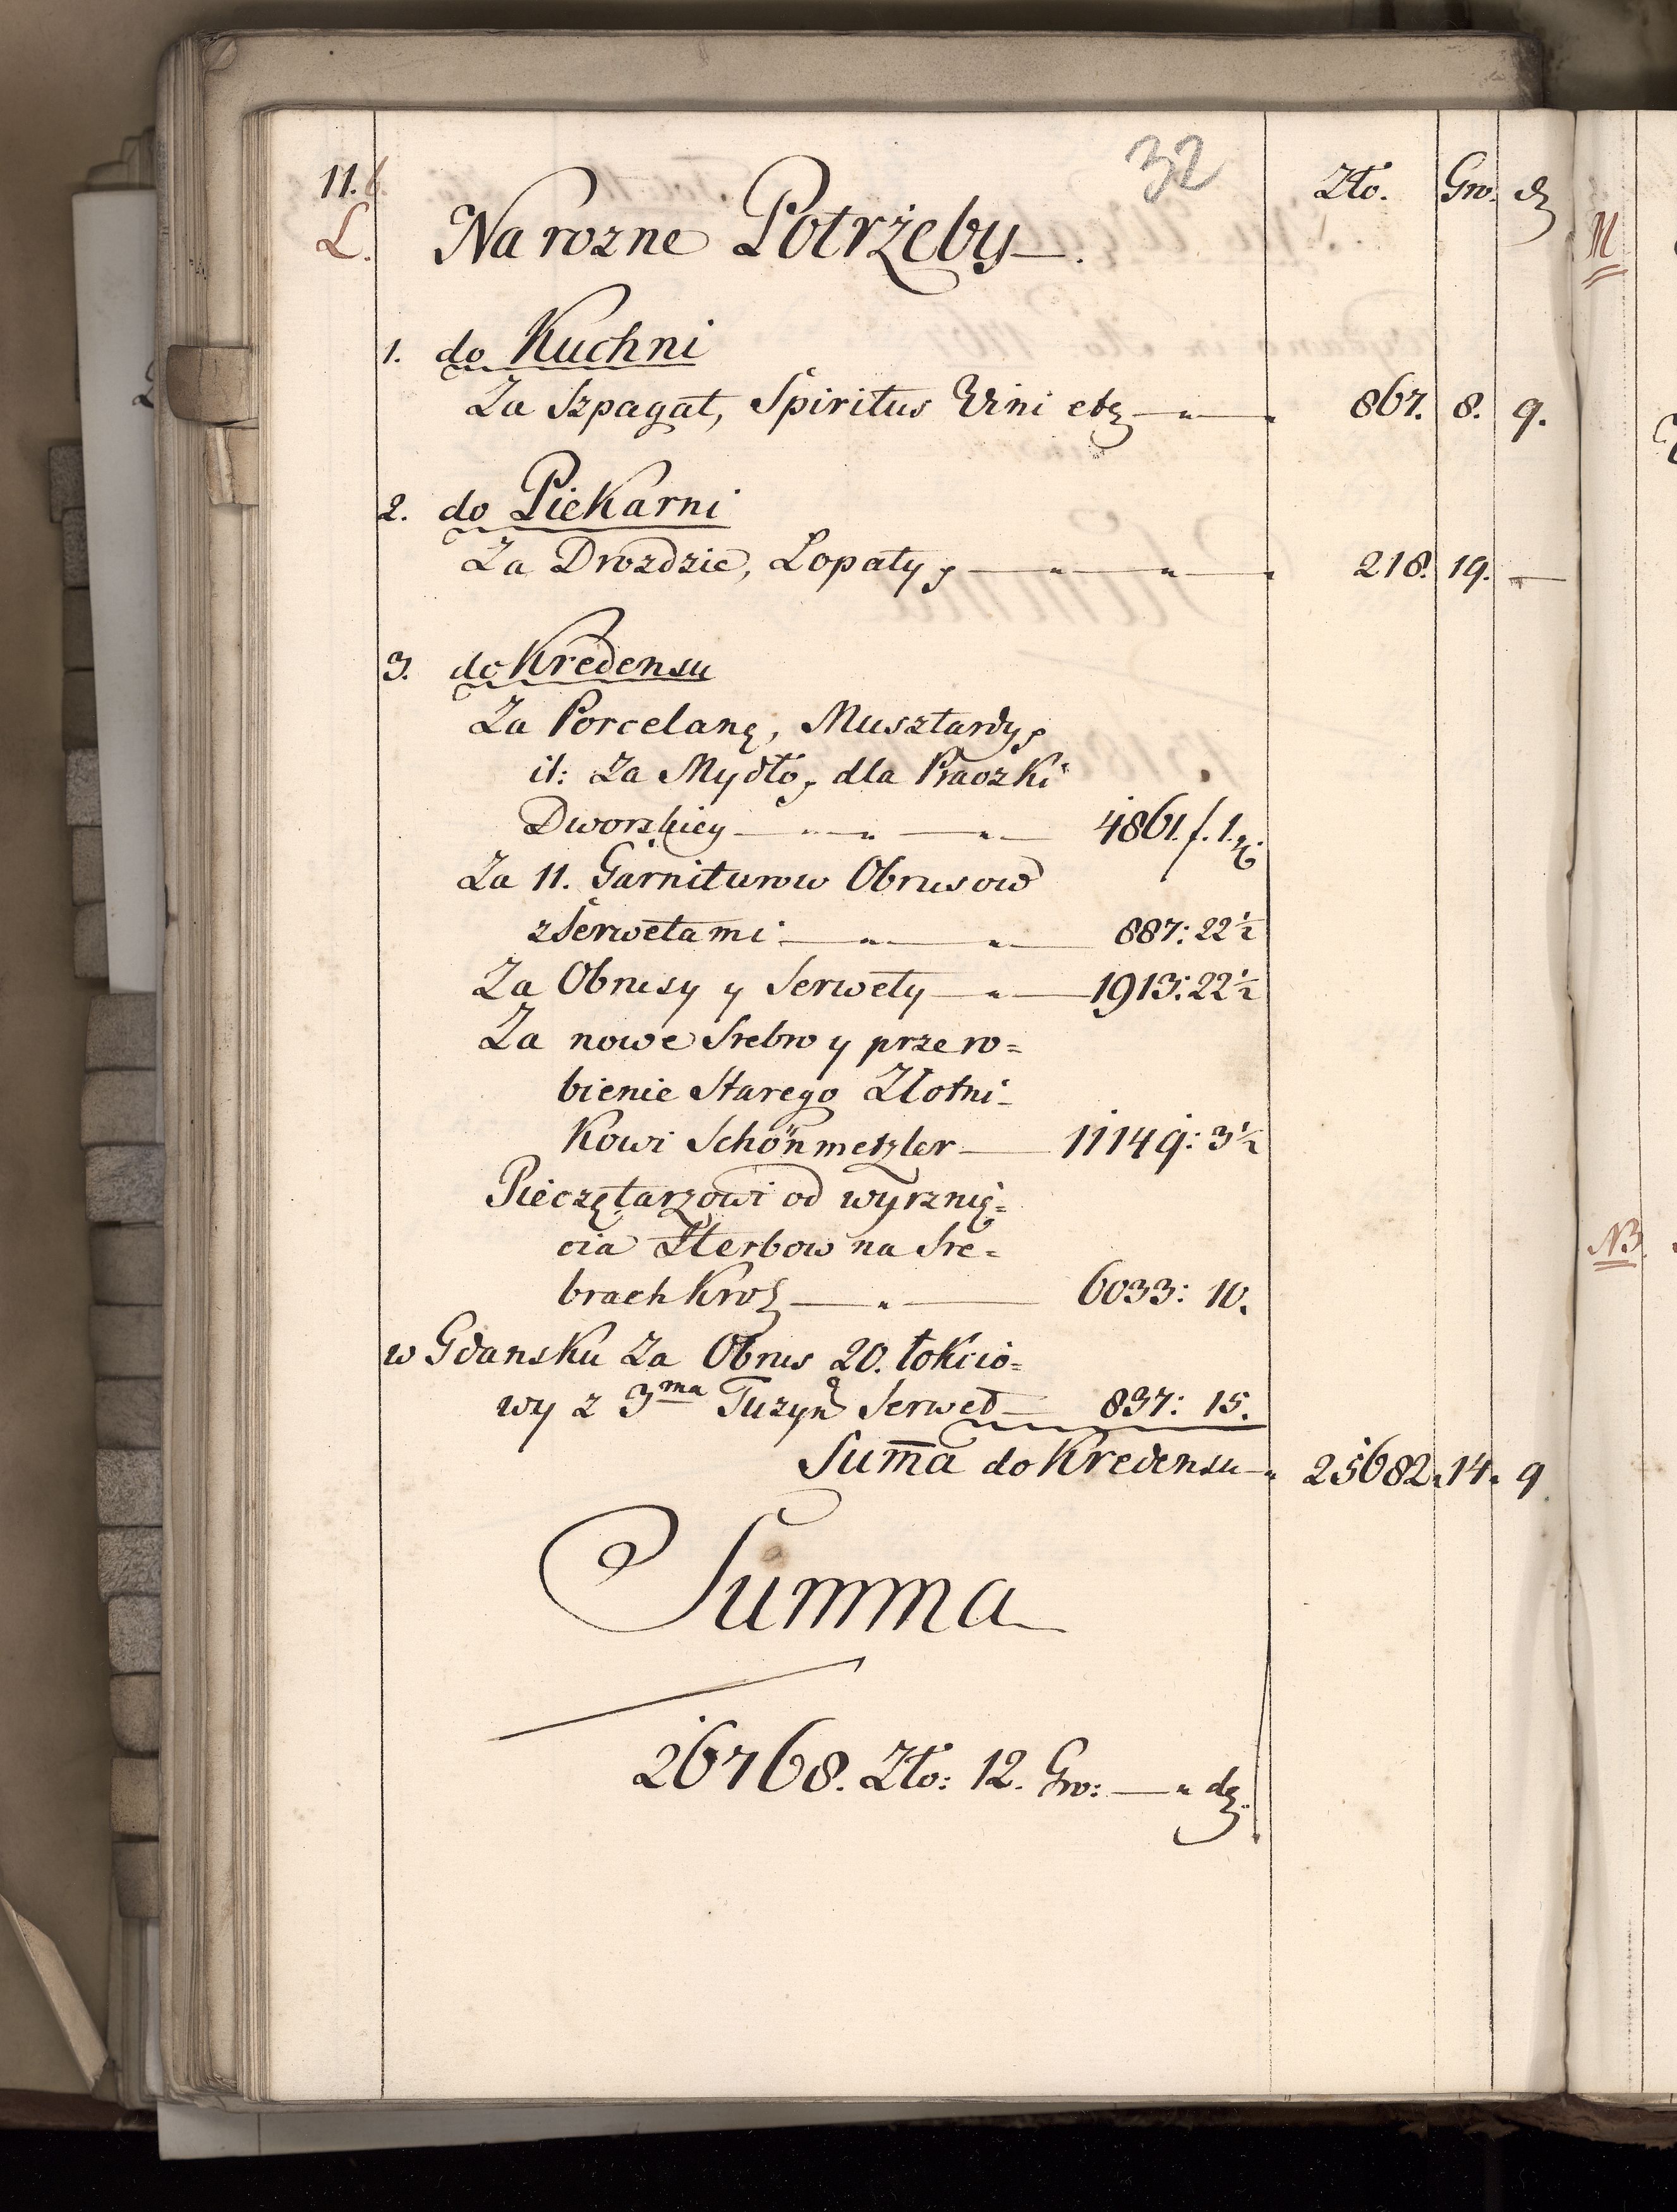 32
11. Zło. Gro. d
L. Na rozne Potrżeby.
M
1. do Kuchni
Za Szpagat, Spiritus Vini etz 867. 8. 9.
2. do Piekarni
Za Drozdzie, Lopaty, 218. 19. —
3. do Kredensu
Za Porcelanę, Musztardy,
it: Za Mydło, dla Praczki
Dworskiey 4861. f. 1.
Za 11. Garniturow Obrusow
z Serwetami 887: 22½
Za Obrusy y Serwety 1913: 22½
Za nowe Srebro y przero=
bienie Starego Złotni-
kowi Schönmetzler 11149: 3½
Pieczętarzowi od wyrznię=
cia Herbow na Sre=
brach Krol 6033: 10.
NB
w Gdansku Za Obrus 20. łokcio=
wy z 3ma Tuzyn Serwet 837: 15.
Sum̄a do Kredensu 25682. 14. 9
Summa
26768. Zło: 12. Gro: — " dz